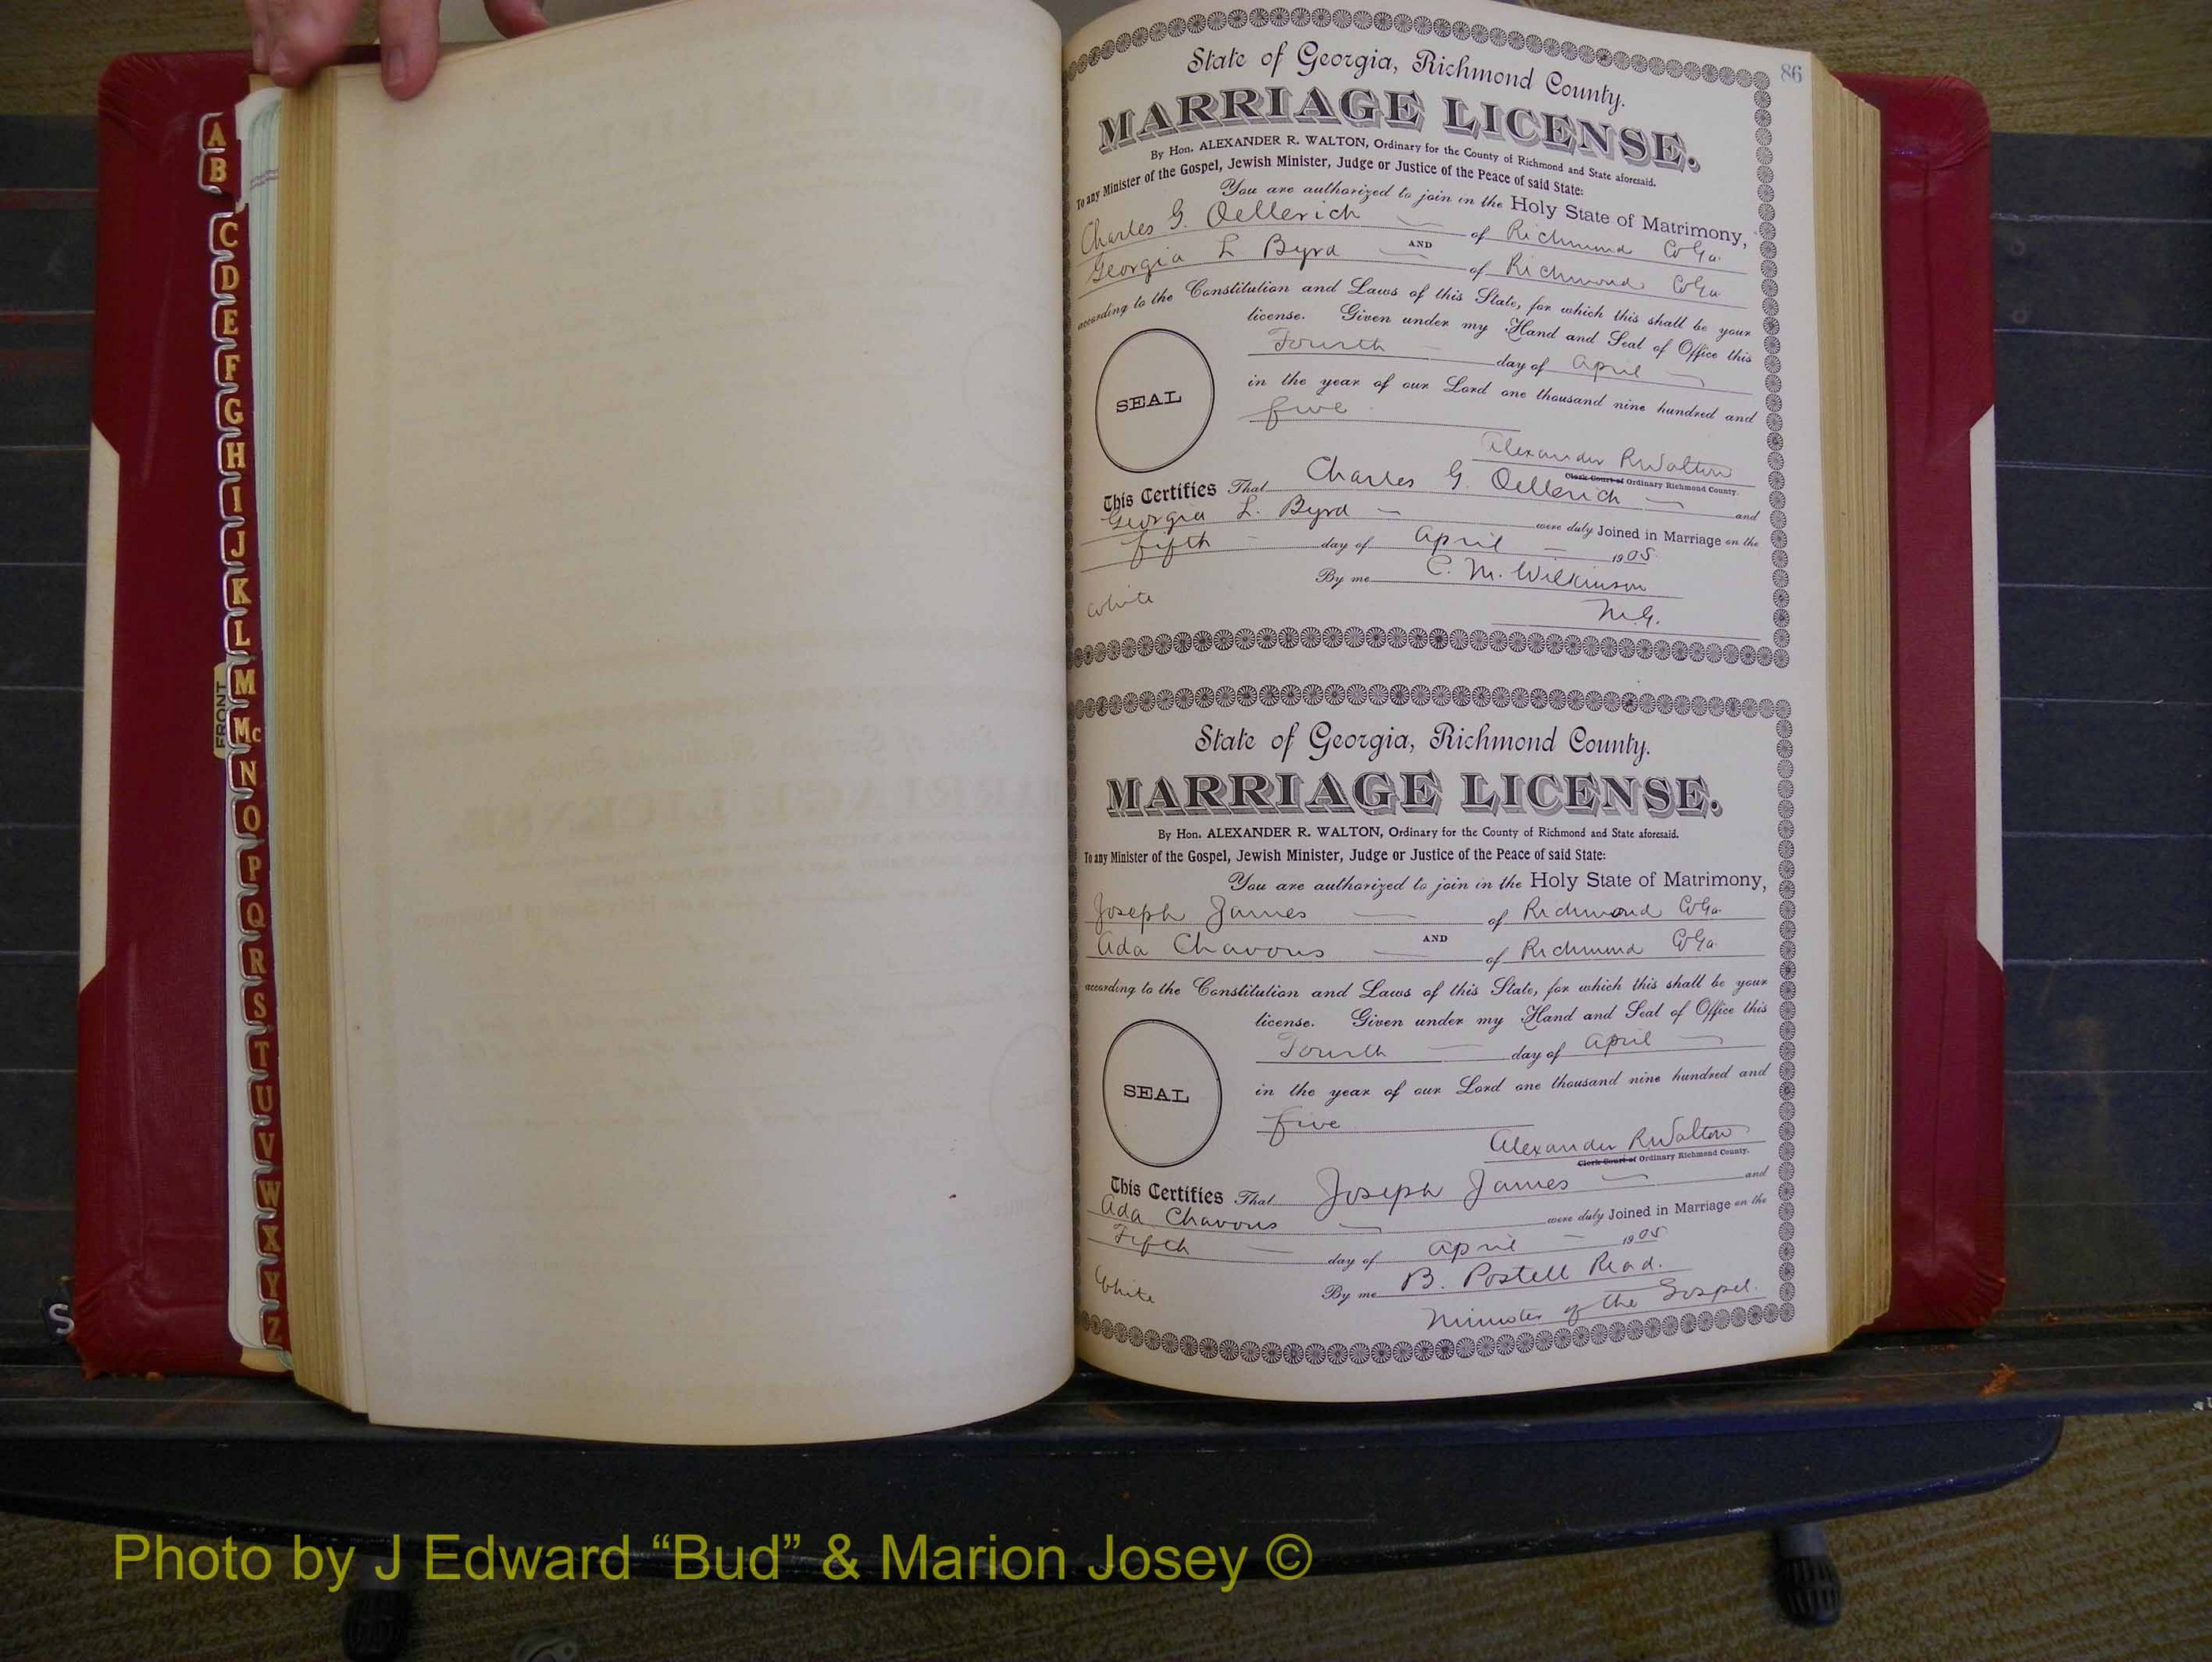 86
State of Georgia, Richmond County.
MARRIAGE LICENSE.
By Hon. ALEXANDER R. WALTON, Ordinary for the County of Richmond and State aforesaid.
To any Minister of the Gospel, Jewish Minister, Judge or Justice of the Peace of said State:
You are authorized to join in the Holy State of Matrimony,
Charles G. Oellerich of Richmond Co Ga.
AND
Georgia L Byrd of Richmond Co Ga
according to the Constitution and Laws of this State, for which this shall be your
license. Given under my Hand and Seal of Office this
Fourth day of April
in the year of our Lord one thousand nine hundred and
five
SEAL
Alexander R Walton
Clerk Court of Ordinary Richmond County.
This Certifies That Charles G. Oellerich and
Georgia L. Byrd were duly Joined in Marriage on the
fifth day of April 1905.
By me C. M. Wilkinson
White
M.G.
State of Georgia, Richmond County.
MARRIAGE LICENSE.
By Hon. ALEXANDER R. WALTON, Ordinary for the County of Richmond and State aforesaid.
To any Minister of the Gospel, Jewish Minister, Judge or Justice of the Peace of said State:
You are authorized to join in the Holy State of Matrimony,
Joseph James of Richmond Co Ga.
AND
Ada Chavous of Richmond Co Ga.
according to the Constitution and Laws of this State, for which this shall be your
license. Given under my Hand and Seal of Office this
Fourth day of April
in the year of our Lord one thousand nine hundred and
five
SEAL
Alexander R Walton
Clerk Court of Ordinary Richmond County.
This Certifies That Joseph James and
Ada Chavous were duly Joined in Marriage on the
Fifth day of April 1905
By me B. Postell Read.
White
Minister of the Gospel.
A
B
C
D
E
F
G
H
I
J
K
L
M
Mc
N
O
P
Q
R
S
T
U
V
W
X
Y
Z
FRONT
S
Photo by J Edward “Bud” & Marion Josey ©